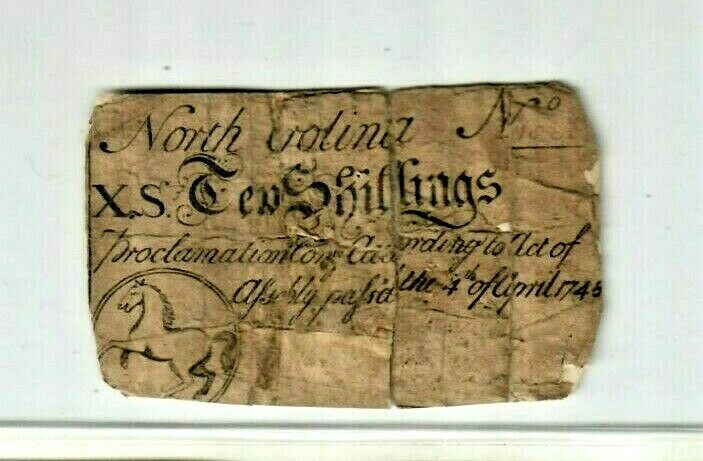 North Carolina No
X.S. Ten Shillings
Proclamation According to Act of
Assebly pass'd the 4th of April 1748